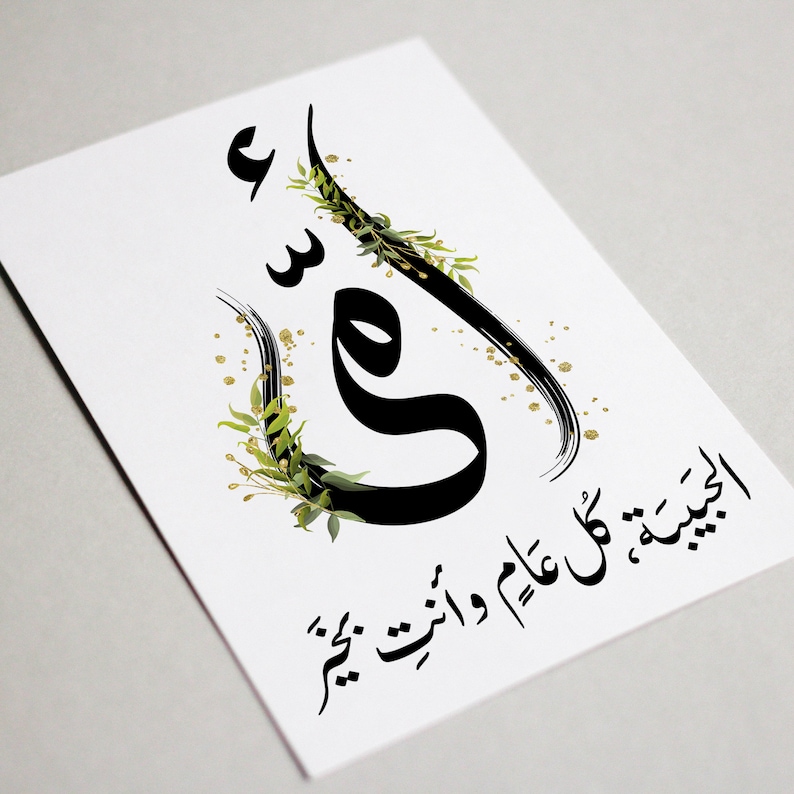 أمّى
الحبَيبَة، كُل عَامٍ وأنتِ بخَير